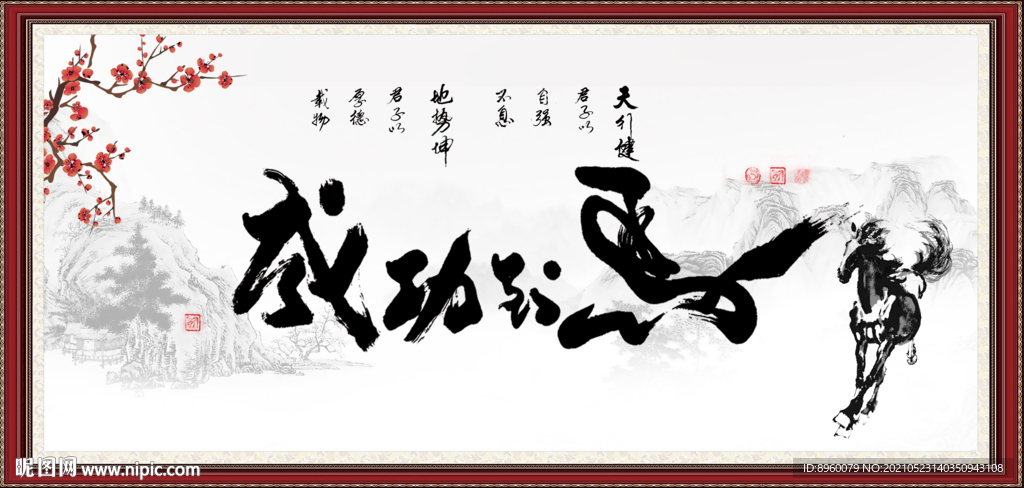 天行健
君子以
自强
不息
地势坤
君子以
厚德
载物
马到功成
昵图网 www.nipic.com
ID:8960079 NO:20210523140350943108